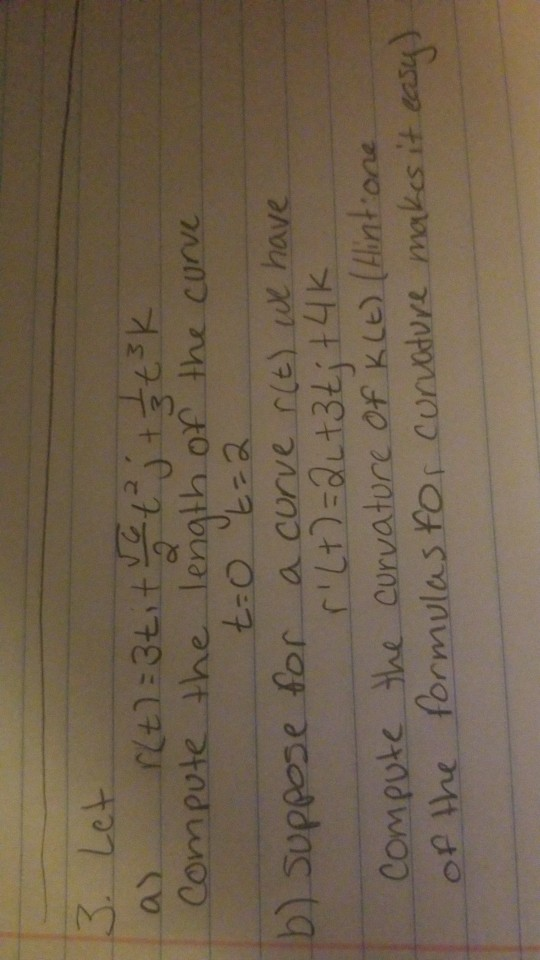 3. Let
a) r(t) = 3ti + √6/2 t² j + 1/3 t³ k
Compute the length of the curve
t=0, t=2
b) Suppose for a curve r(t) we have
r'(t) = 2i + 3tj + 4k
Compute the curvature of k(t) (Hint: one
of the formulas for curvature makes it easy)